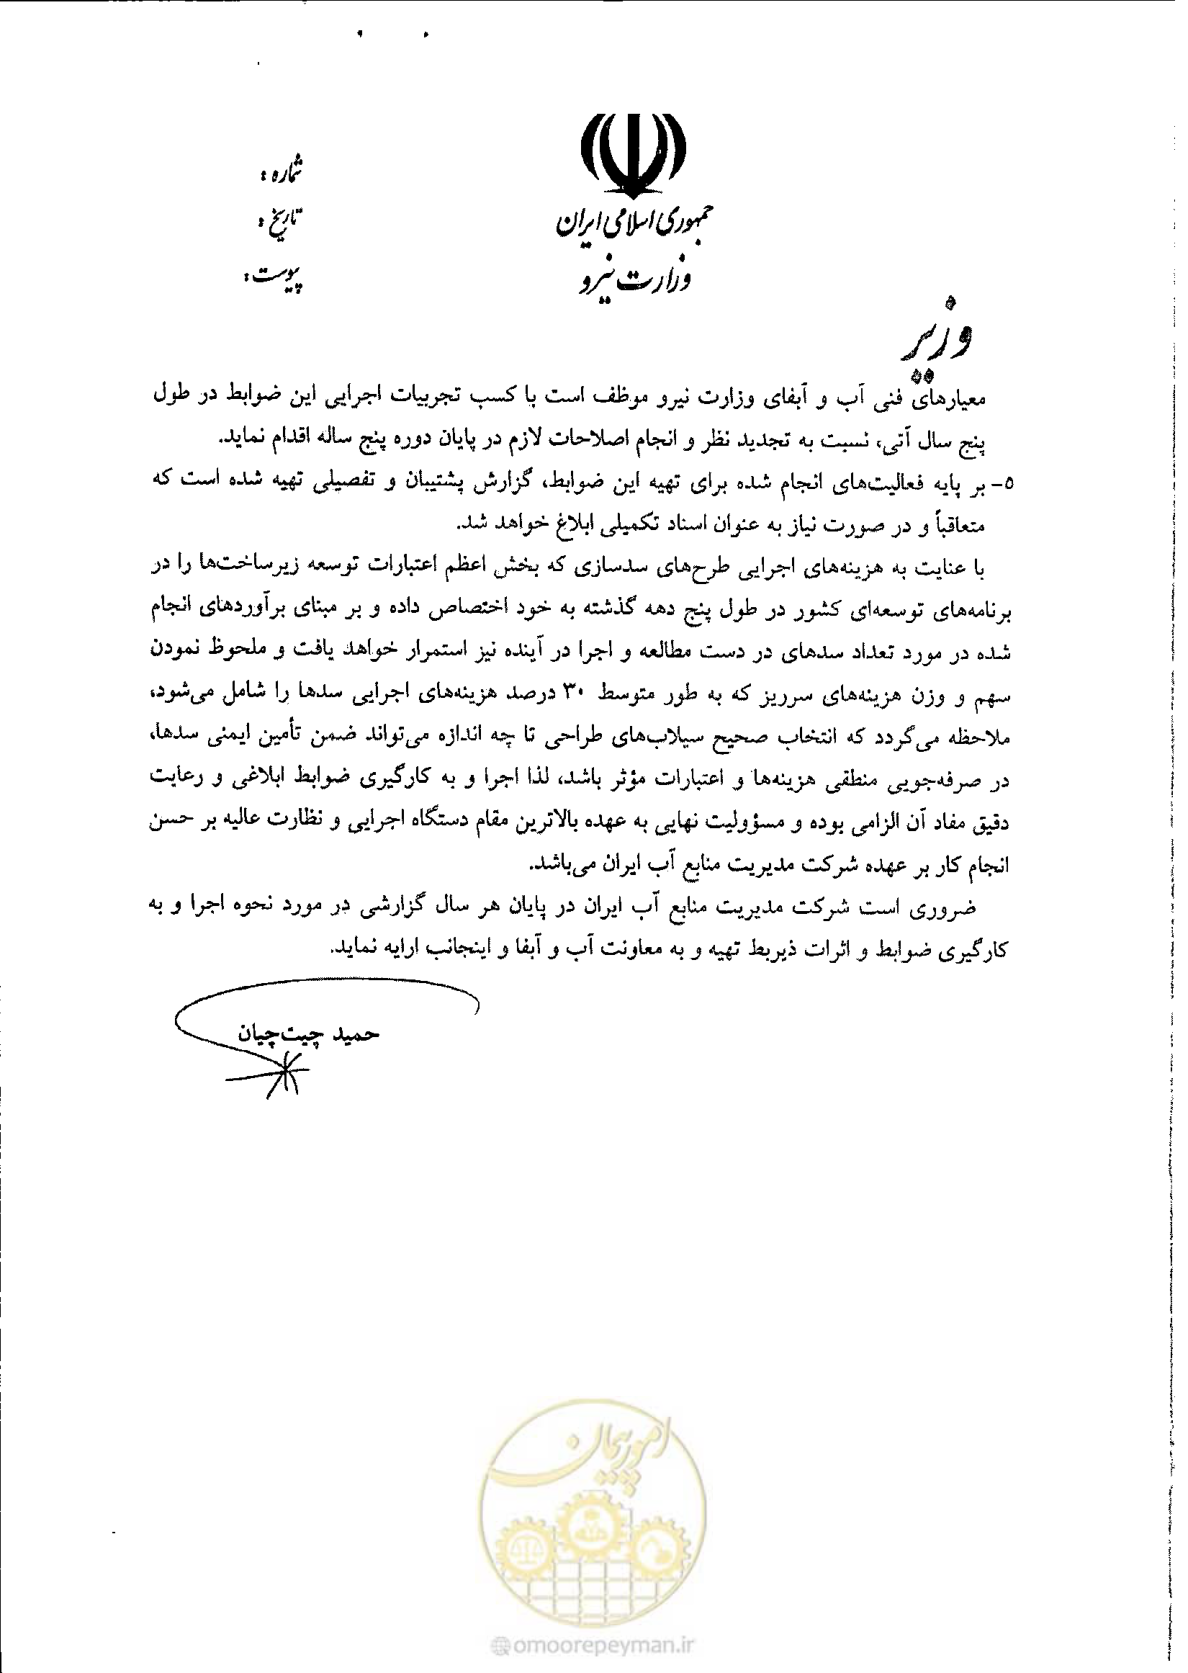 جمهوری اسلامی ایران
وزارت نیرو
شماره :
تاریخ :
پیوست :
وزیر
معیارهای فنی آب و آبفای وزارت نیرو موظف است با کسب تجربیات اجرایی این ضوابط در طول
پنج سال آتی، نسبت به تجدید نظر و انجام اصلاحات لازم در پایان دوره پنج ساله اقدام نماید.
۵- بر پایه فعالیت‌های انجام شده برای تهیه این ضوابط، گزارش پشتیبان و تفصیلی تهیه شده است که
متعاقباً و در صورت نیاز به عنوان اسناد تکمیلی ابلاغ خواهد شد.
با عنایت به هزینه‌های اجرایی طرح‌های سدسازی که بخش اعظم اعتبارات توسعه زیرساخت‌ها را در
برنامه‌های توسعه‌ای کشور در طول پنج دهه گذشته به خود اختصاص داده و بر مبنای برآوردهای انجام
شده در مورد تعداد سدهای در دست مطالعه و اجرا در آینده نیز استمرار خواهد یافت و ملحوظ نمودن
سهم و وزن هزینه‌های سرریز که به طور متوسط ۳۰ درصد هزینه‌های اجرایی سدها را شامل می‌شود،
ملاحظه می‌گردد که انتخاب صحیح سیلاب‌های طراحی تا چه اندازه می‌تواند ضمن تأمین ایمنی سدها،
در صرفه‌جویی منطقی هزینه‌ها و اعتبارات مؤثر باشد، لذا اجرا و به کارگیری ضوابط ابلاغی و رعایت
دقیق مفاد آن الزامی بوده و مسؤولیت نهایی به عهده بالاترین مقام دستگاه اجرایی و نظارت عالیه بر حسن
انجام کار بر عهده شرکت مدیریت منابع آب ایران می‌باشد.
ضروری است شرکت مدیریت منابع آب ایران در پایان هر سال گزارشی در مورد نحوه اجرا و به
کارگیری ضوابط و اثرات ذیربط تهیه و به معاونت آب و آبفا و اینجانب ارایه نماید.
حمید چیت‌چیان
امور پیمان
omoorepeyman.ir